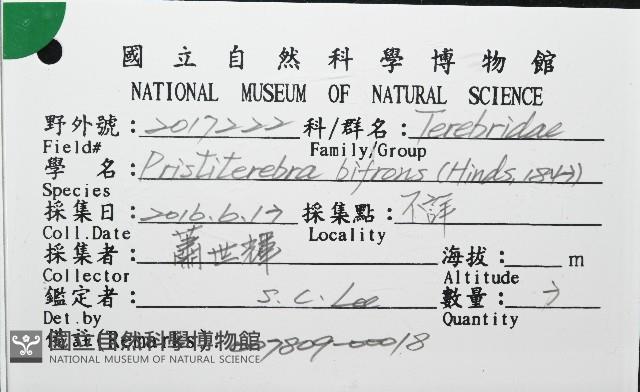 國立自然科學博物館
NATIONAL MUSEUM OF NATURAL SCIENCE
野外號：2017222 科/群名：Terebridae
Field# Family/Group
學 名：Pristiterebra bifrons (Hinds, 1843)
Species
採集日：2016.6.17 採集點：不詳
Coll.Date Locality
採集者：蕭世輝 海拔： m
Collector Altitude
鑑定者：S. C. Lee 數量：
Det.by Quantity
(Remarks) 7809-00018
國立自然科學博物館
NATIONAL MUSEUM OF NATURAL SCIENCE